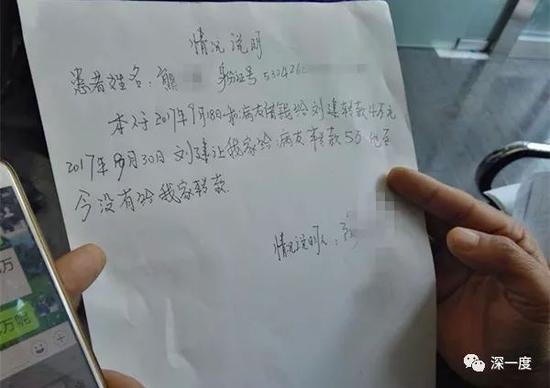 情况说明
患者姓名:熊 身份证号 530426
本人于2017年9月18日和病友借钱给刘建转款4万元
2017年9月30日刘建让我家给病友转款5万他至
今没有给我家转款
情况说明人:
万
万呢
深一度